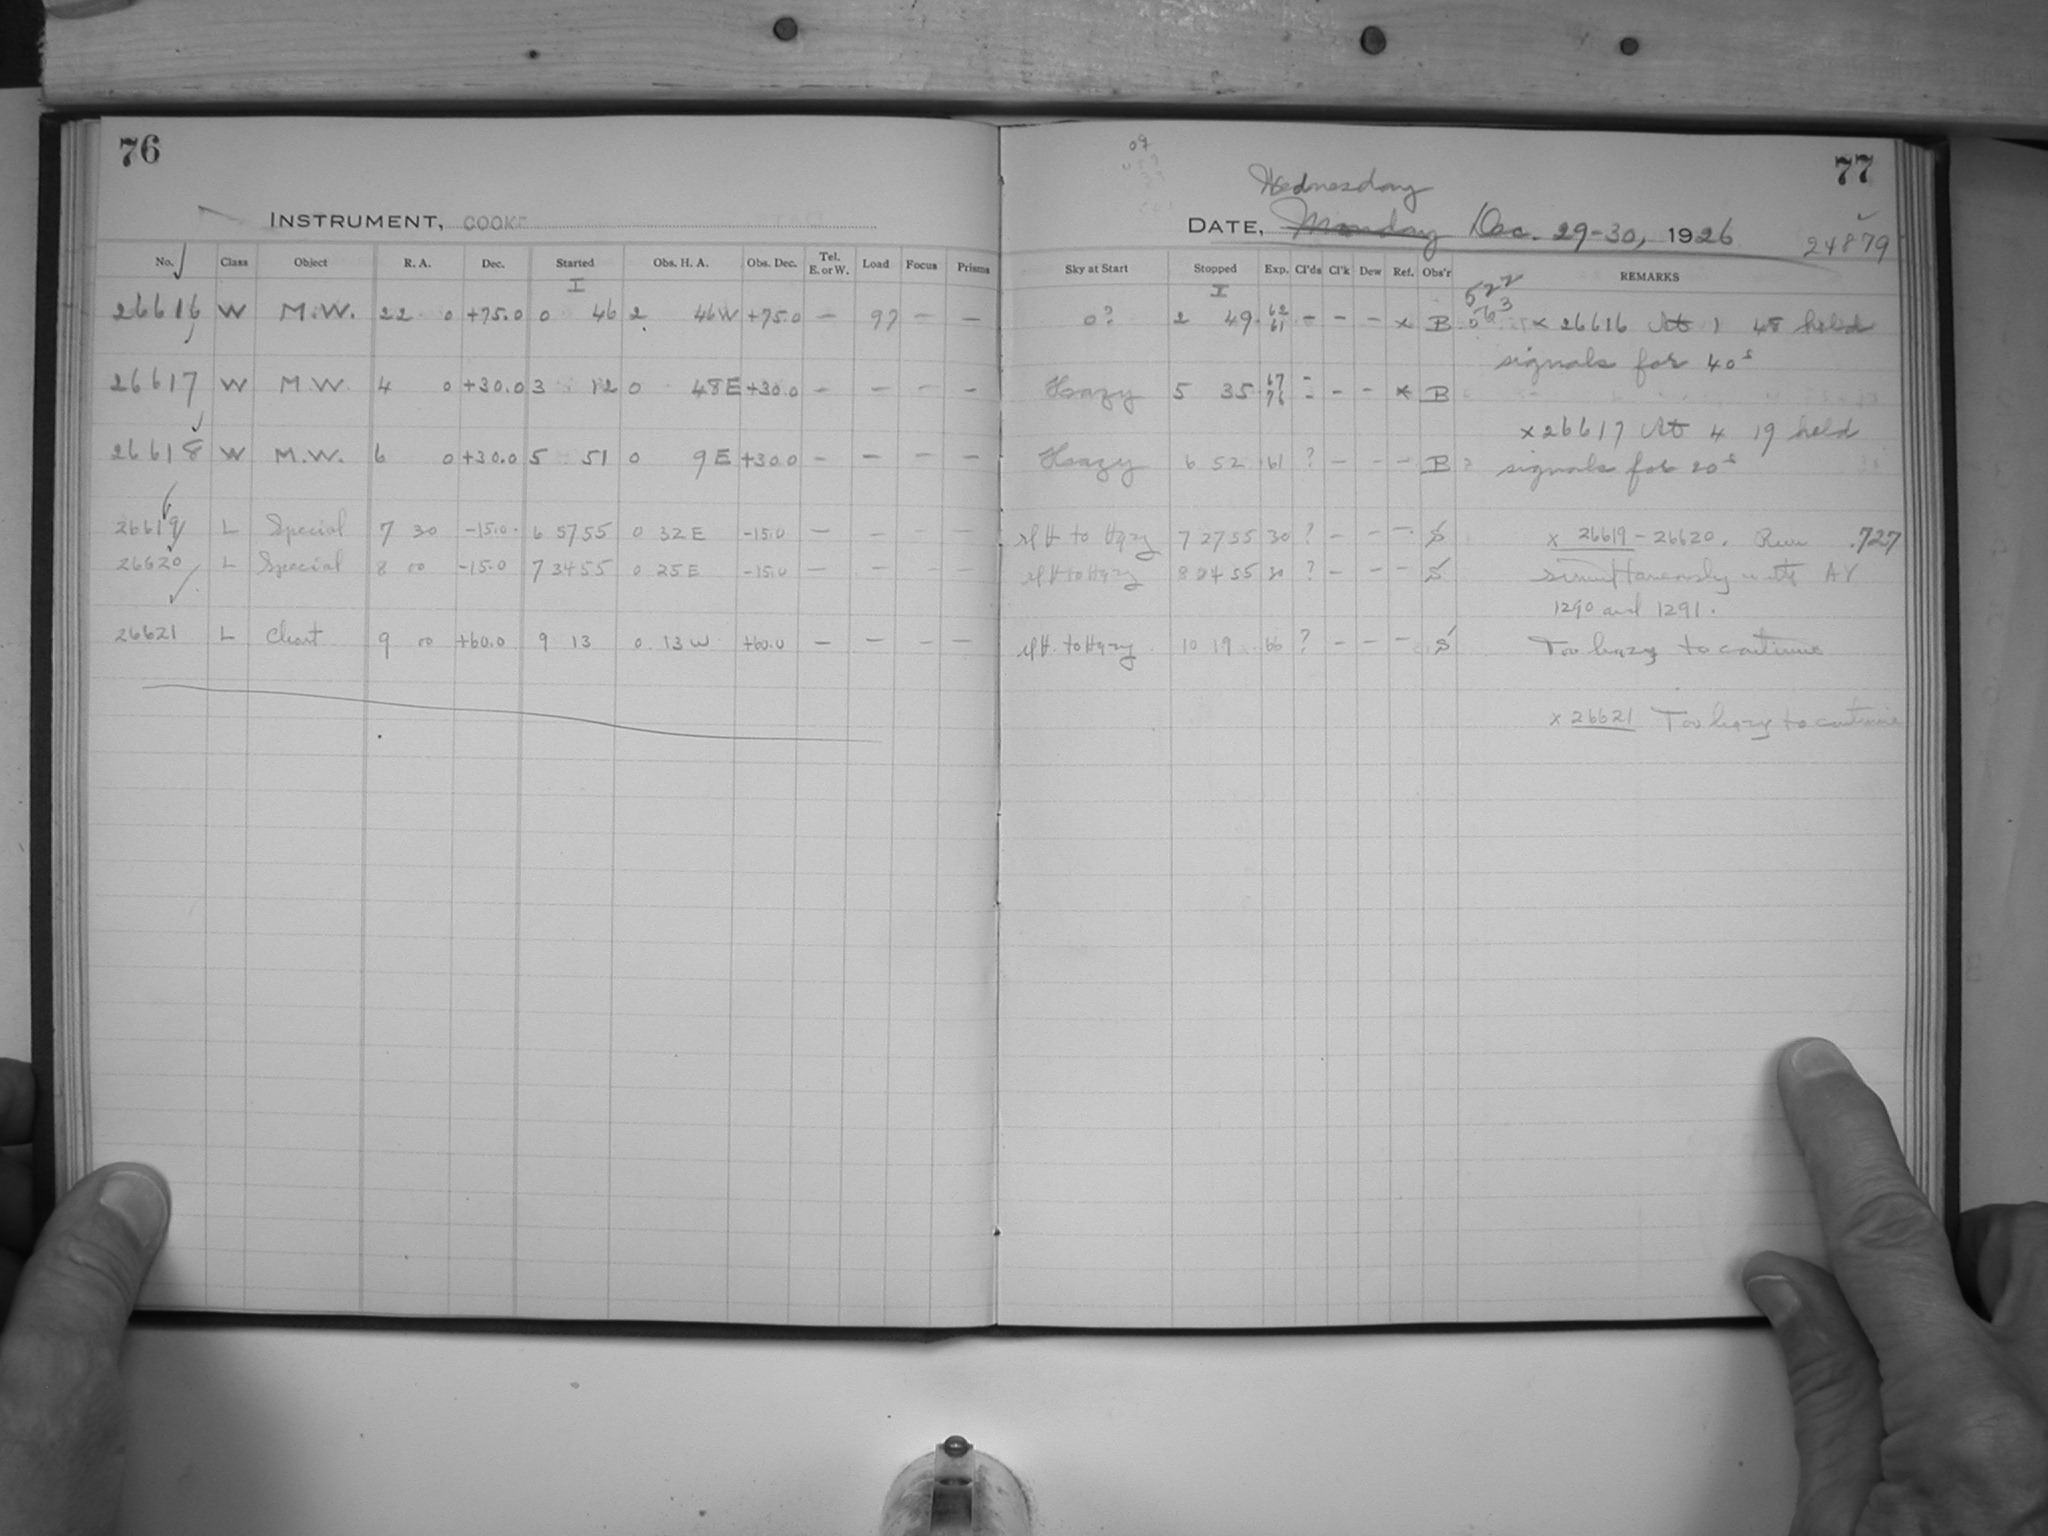 76
INSTRUMENT, COOKE
No. Class Object R. A. Dec. Started Obs. H. A. Obs. Dec. Tel. E. or W. Load Focus Prisms
I
26616 W M.W. 22 0 +75.0 0 46 2 46W +75.0 — 97 — —
26617 W M.W. 4 0 +30.0 3 12 0 48E +30.0 — — — —
26618 W M.W. 6 0 +30.0 5 51 0 9E +30.0 — — — —
26619 L Special 7 30 -15.0 6 57 55 0 32E -15.0 — — — —
26620 L Special 8 00 -15.0 7 34 55 0 25E -15.0 — — — —
26621 L Chart 9 00 +60.0 9 13 0 13W +60.0 — — — —
09
77
Wednesday
DATE, Monday Dec. 29-30, 1926
24879
Sky at Start Stopped Exp. Cl'ds Cl'k Dew Ref. Obs'r REMARKS
I
522
0? 2 49 62 61 — — — x B 563 x 26616 At 1 48 held
signals for 40s
Hazy 5 35 67 76 — — — — x B
x 26617 At 4 19 held
Hazy 6 52 61 ? — — — B signals for 20s
sl H to Hazy 7 27 55 30 ? — — — S x 26619 - 26620. Run .727
sl H to Hazy 8 24 55 30 ? — — S simultaneously with AY
1290 and 1291.
sl H. to Hazy 10 19 66 ? — — — S Too hazy to continue
x 26621 Too hazy to continue